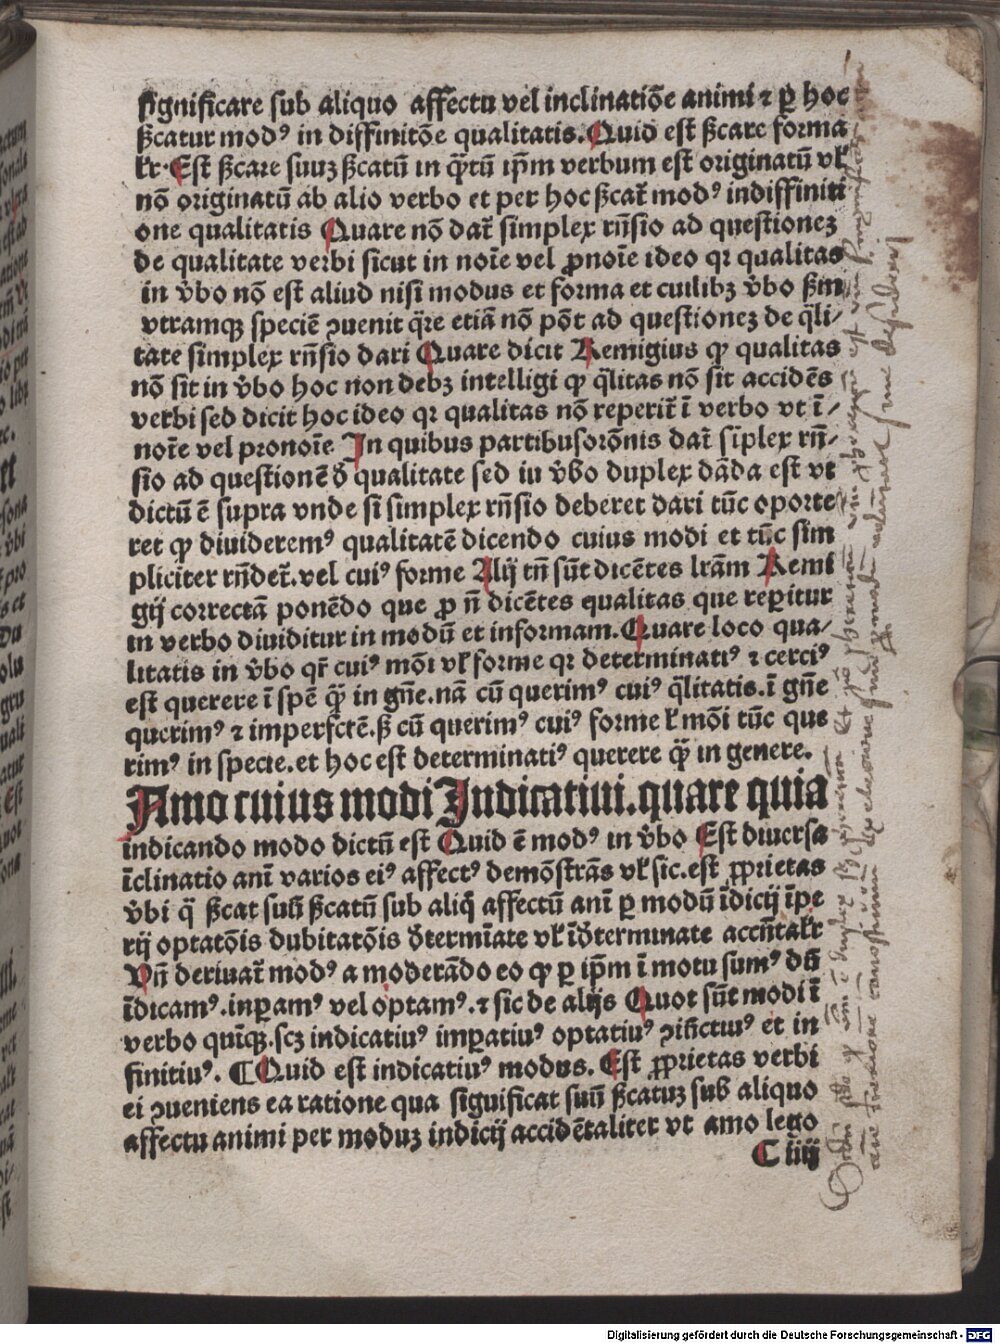 significare sub aliquo affectu vel inclinatiōe animi ⁊ ꝑ hoc
ßcatur modꝰ in diffinitōe qualitatis. Quid est ßcare forma
lr̄. Est ßcare suuꝫ ßcatū in q̄tū ip̄m verbum est originatū vl̄
nō originatū ab alio verbo et per hoc ßcat̄ modꝰ indiffiniti
one qualitatis Quare nō dat̄ simplex rn̄sio ad questioneꝫ
de qualitate verbi sicut in noīe vel ꝓnoīe ideo qꝛ qualitas
in v̄bo nō est aliud nisi modus et forma et cuilibꝫ v̄bo ßm
vtramqꝫ speciē ꝯuenit q̄re etiā nō pōt ad questioneꝫ de q̄li/
tate simplex rn̄sio dari Quare dicit Remigius ꝙ qualitas
nō sit in v̄bo hoc non debꝫ intelligi ꝙ q̄litas nō sit accidēs
verbi sed dicit hoc ideo qꝛ qualitas nō reperit̄ ī verbo vt ī/
noīe vel pronoīe In quibus partibusorōnis dat̄ siplex rn̄/
sio ad questionē ð qualitate sed iu v̄bo duplex dāda est vt
dictū ē supra vnde si simplex rn̄sio deberet dari tūc oporte
ret ꝙ diuideremꝰ qualitatē dicendo cuius modi et tūc sim
pliciter rn̄det̄. vel cuiꝰ forme Alij tn̄ sūt dicētes lr̄am Remi
gij correctā ponēdo que ꝓ n̄ dicētes qualitas que reꝑitur
in verbo diuiditur in modū et informam. Quare loco qua/
litatis in v̄bo qr̄ cuiꝰ mōi vl̄ forme qꝛ determinatiꝰ ⁊ cerciꝰ
est querere ī spē q̄ꝫ in gn̄e. nā cū querimꝰ cuiꝰ q̄litatis. ī gn̄e
querimꝰ ⁊ imperfctē. ß cū querimꝰ cuiꝰ forme l̄ mōi tūc que
rimꝰ in specie. et hoc est determinatiꝰ querere q̄ꝫ in genere.
Amo cuius modi Indicatiui. quare quia
indicando modo dictū est Quid ē modꝰ in v̄bo Est diuersa
īclinatio anī varios eiꝰ affectꝰ demōstrās vl̄ sic. est ꝓprietas
v̄bi q̄ ßcat suū ßcatū sub aliq̄ affectū anī ꝑ modū īdicij īpe
rij optatōis dubitatōis ðtermīate vl̄ īðterminate accn̄talr̄
Vn̄ deriuat̄ modꝰ a moderādo eo ꝙ ꝑ ip̄m ī motu sumꝰ dū
īdicamꝰ. inꝑamꝰ vel optamꝰ. ⁊ sic de alijs Quot sūt modi ī
verbo quīqꝫ. scꝫ indicatiuꝰ imꝑatiuꝰ optatiuꝰ ꝯiūctiuꝰ et in
finitiuꝰ. ¶ Quid est indicatiuꝰ modus. Est ꝓprietas verbi
ei ꝯueniens ea ratione qua siguificat suū ßcatuꝫ sub aliquo
affectu animi per moduꝫ indicij accidētaliter vt amo lego
C iiij
Digitalisierung gefördert durch die Deutsche Forschungsgemeinschaft - DFG